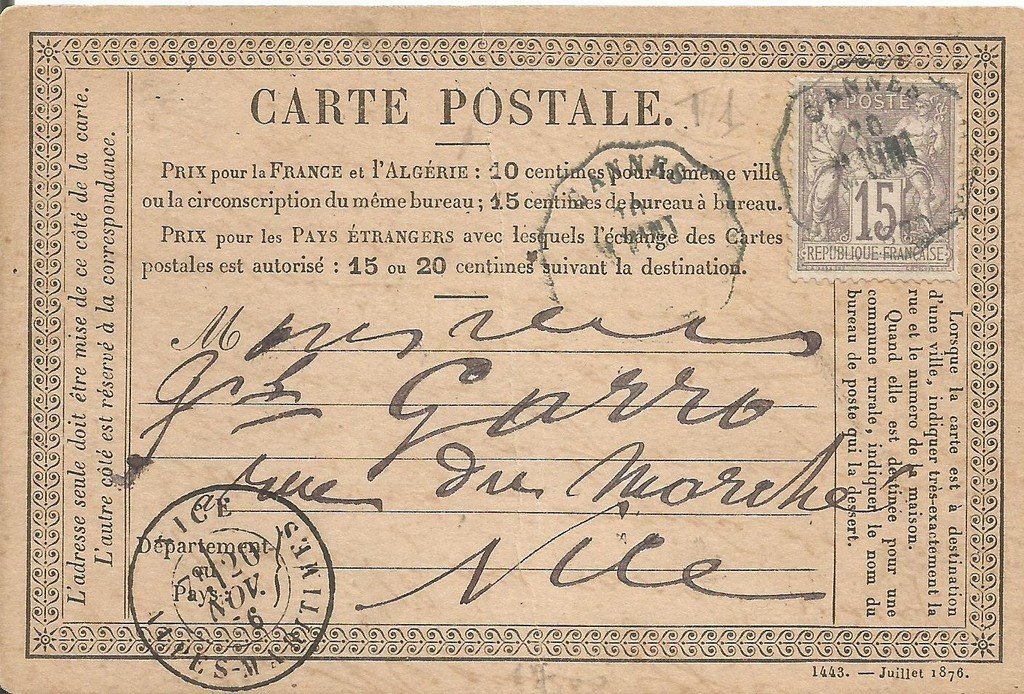 CARTE POSTALE.
T1
PRIX pour la FRANCE et l'ALGÉRIE : 10 centimes pour la même ville
ou la circonscription du même bureau ; 15 centimes de bureau à bureau.
PRIX pour les PAYS ÉTRANGERS avec lesquels l'échange des Cartes
postales est autorisé : 15 ou 20 centimes suivant la destination.
Monsieur
Garro
rue du Marché
Nice
Département
ou
Pays :
L'adresse seule doit être mise de ce côté de la carte.
L'autre côté est réservé à la correspondance.
Lorsque la carte est à destination
d'une ville, indiquer très-exactement la
rue et le numero de la maison.
Quand elle est destinée pour une
commune rurale, indiquer le nom du
bureau de poste qui la dessert.
POSTE
15
RÉPUBLIQUE FRANÇAISE
CANNES
20
CANNES
NICE
20
NOV.
6
ALPES-MARITIMES
1443. — Juillet 1876.